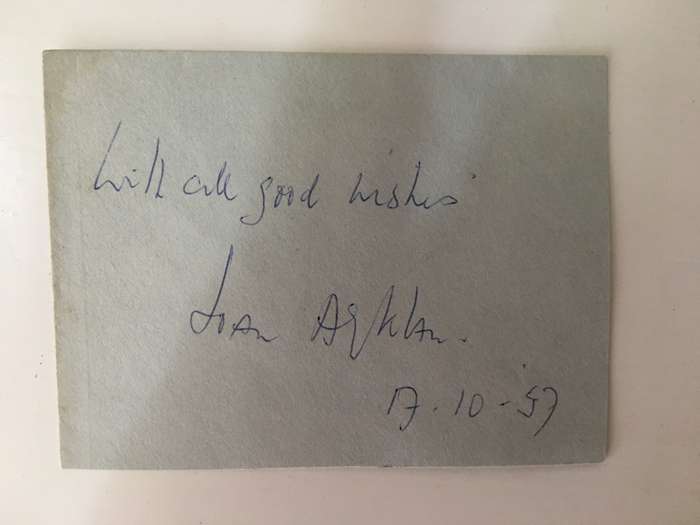 With all good wishes
Joan
17.10-57